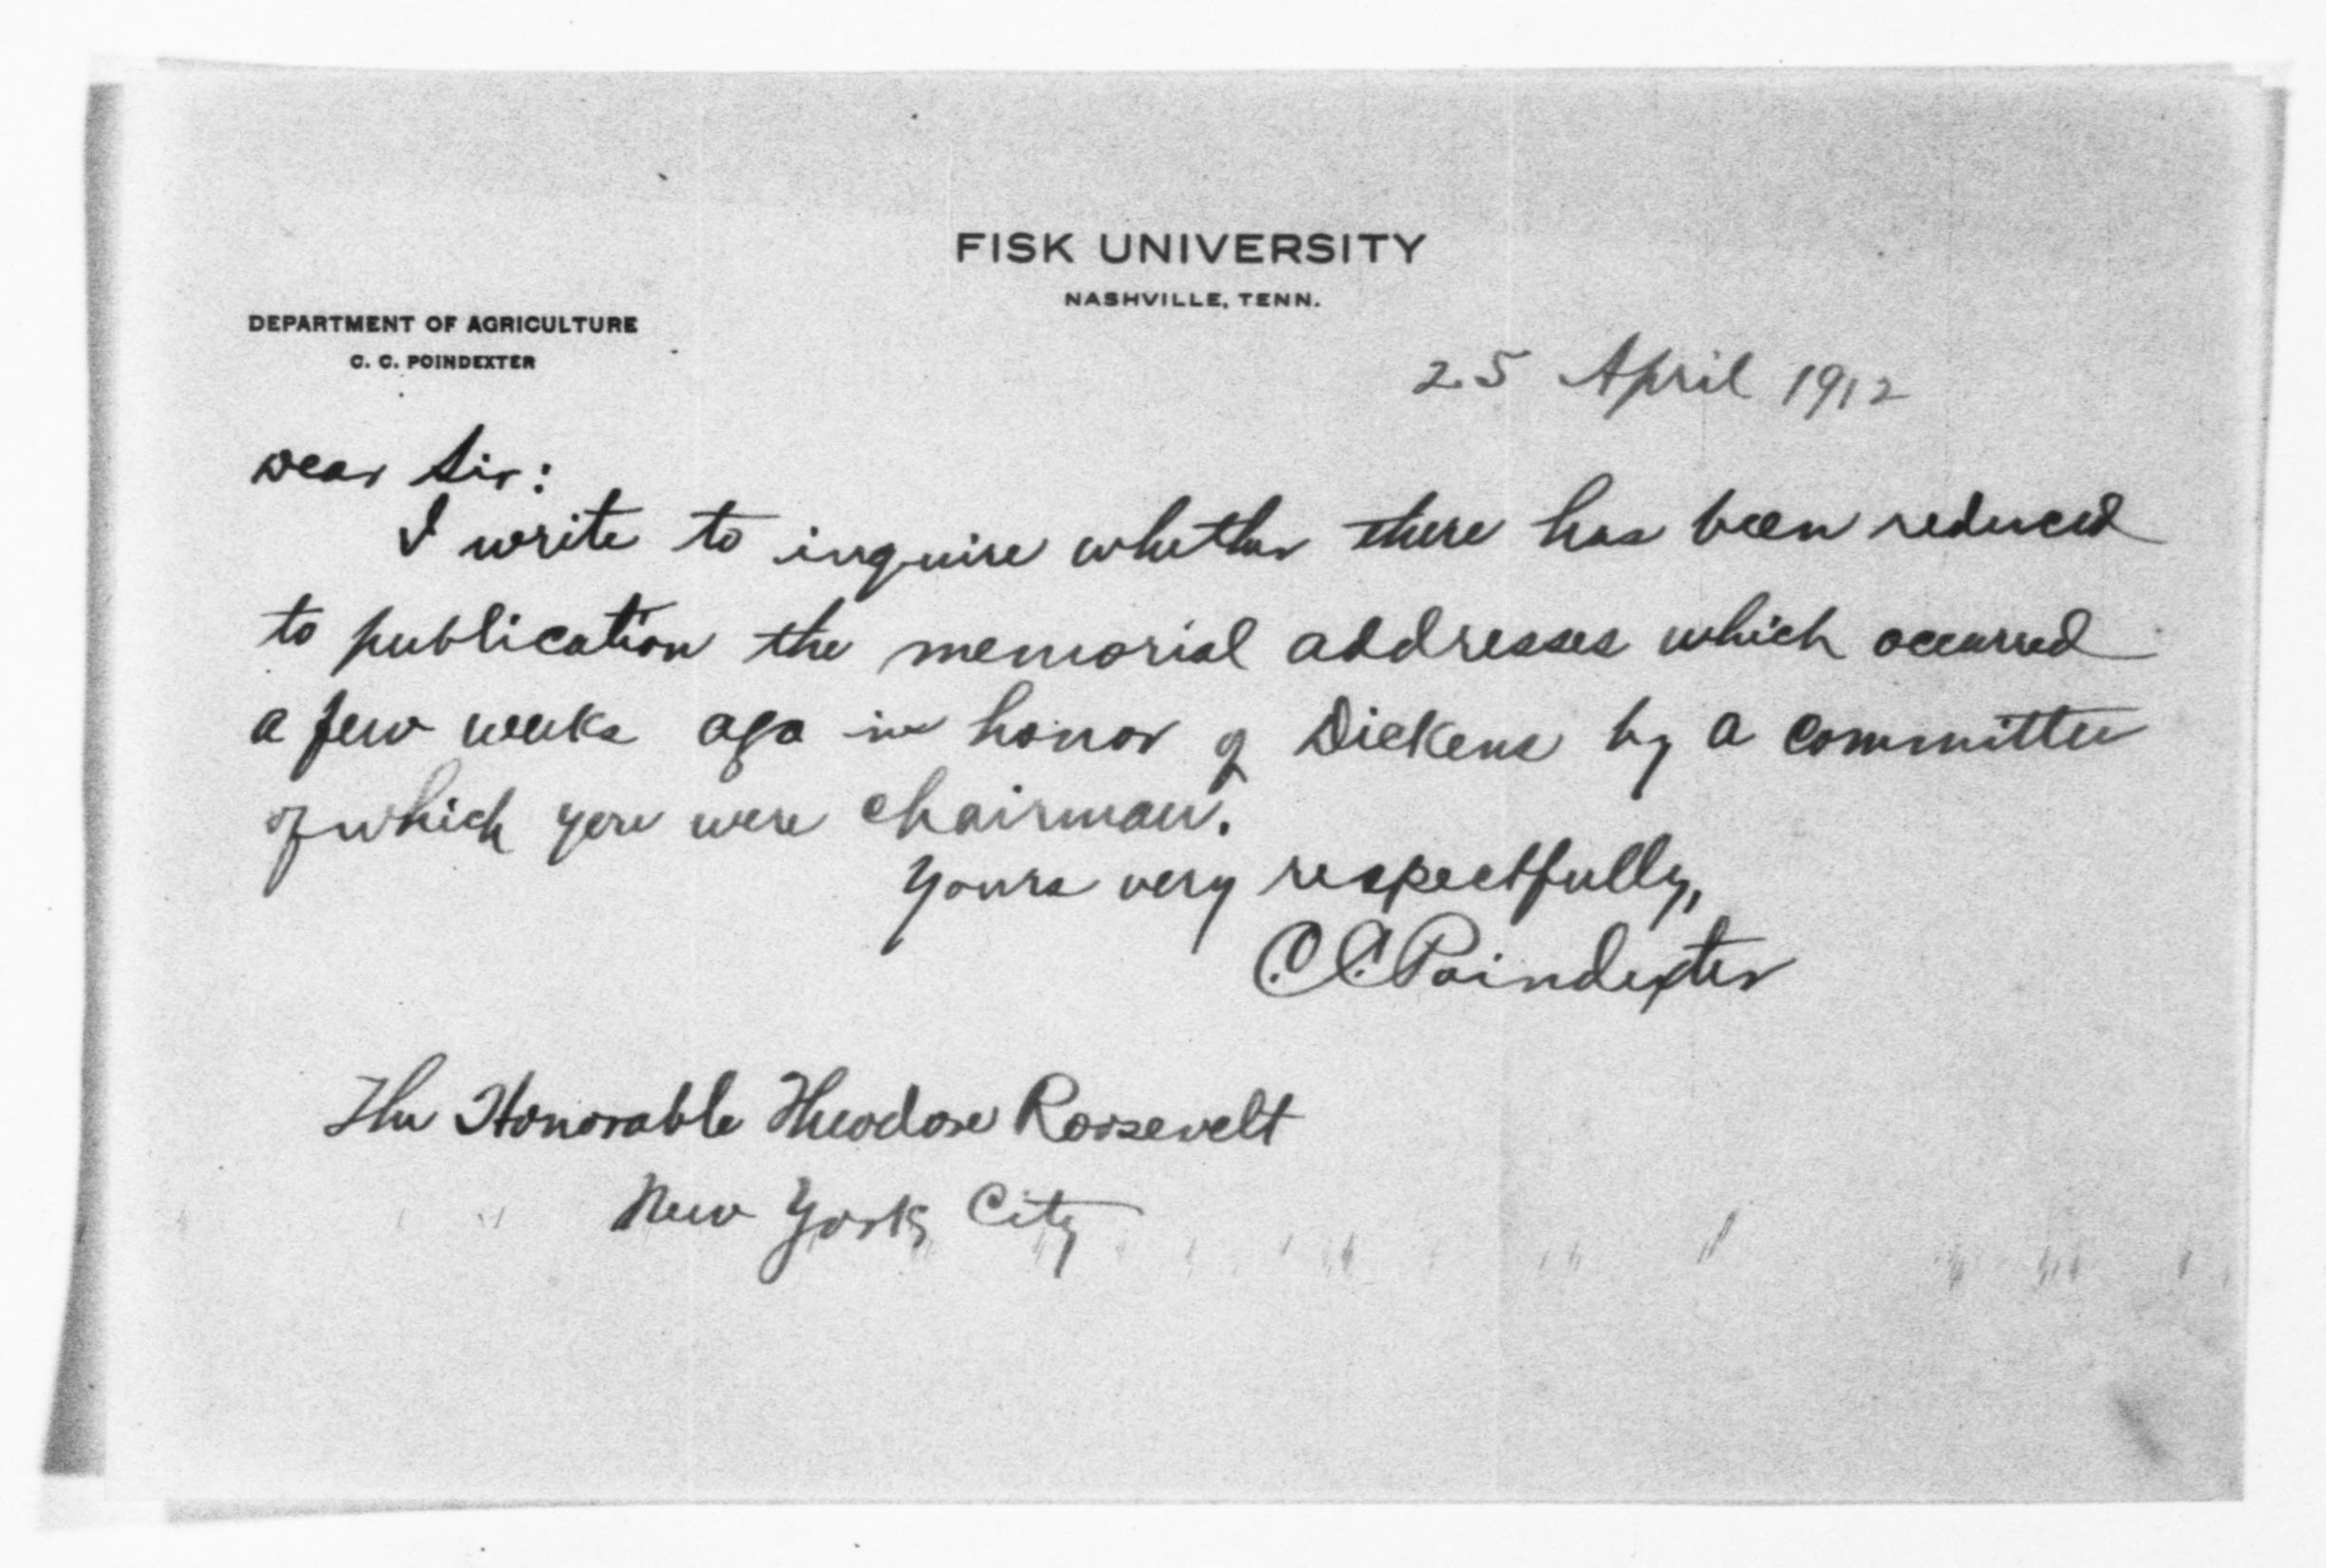 FISK UNIVERSITY
NASHVILLE, TENN.
DEPARTMENT OF AGRICULTURE
C. C. POINDEXTER
25 April 1912
Dear Sir:
I write to inquire whether there has been reduced
to publication the memorial addresses which occurred
a few weeks ago in honor of Dickens by a committee
of which you were chairman.
Yours very respectfully,
C. C. Poindexter
The Honorable Theodore Roosevelt
New York City